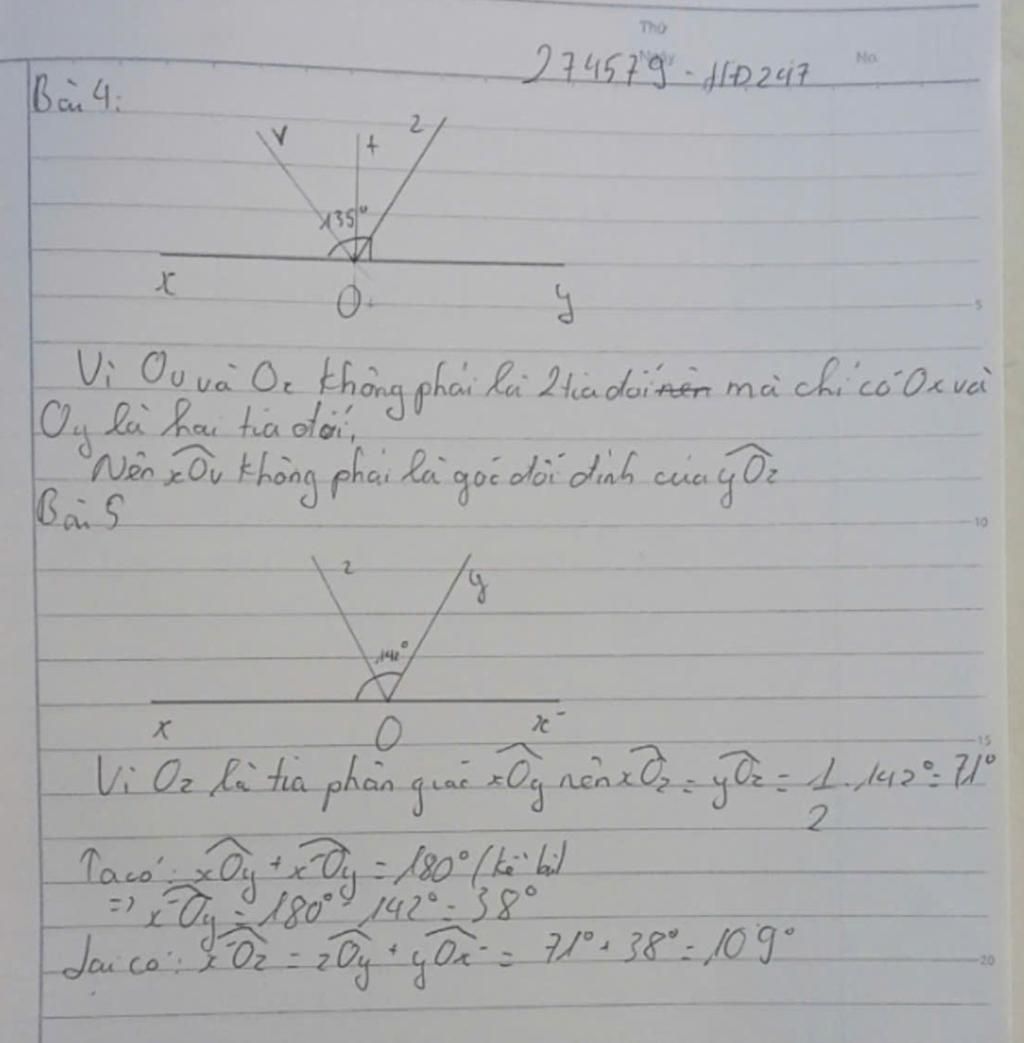 Thứ
Ngày
No.
274579 - HD247
Bài 4:
v t z
135°
x O y
5
Vì Ov và Oz không phải là 2 tia đối nên mà chỉ có Ox và
Oy là hai tia đối,
Nên xOv không phải là góc đối đỉnh của yOz
Bài 5
10
z y
142°
x O x'
15
Vì Oz là tia phân giác xOy nên xOz = yOz = 1/2 . 142° = 71°
Ta có: xOy + x'Oy = 180° (kề bù)
=> x'Oy = 180° - 142° = 38°
Lại có: x'Oz = zOy + yOx' = 71° + 38° = 109°
20